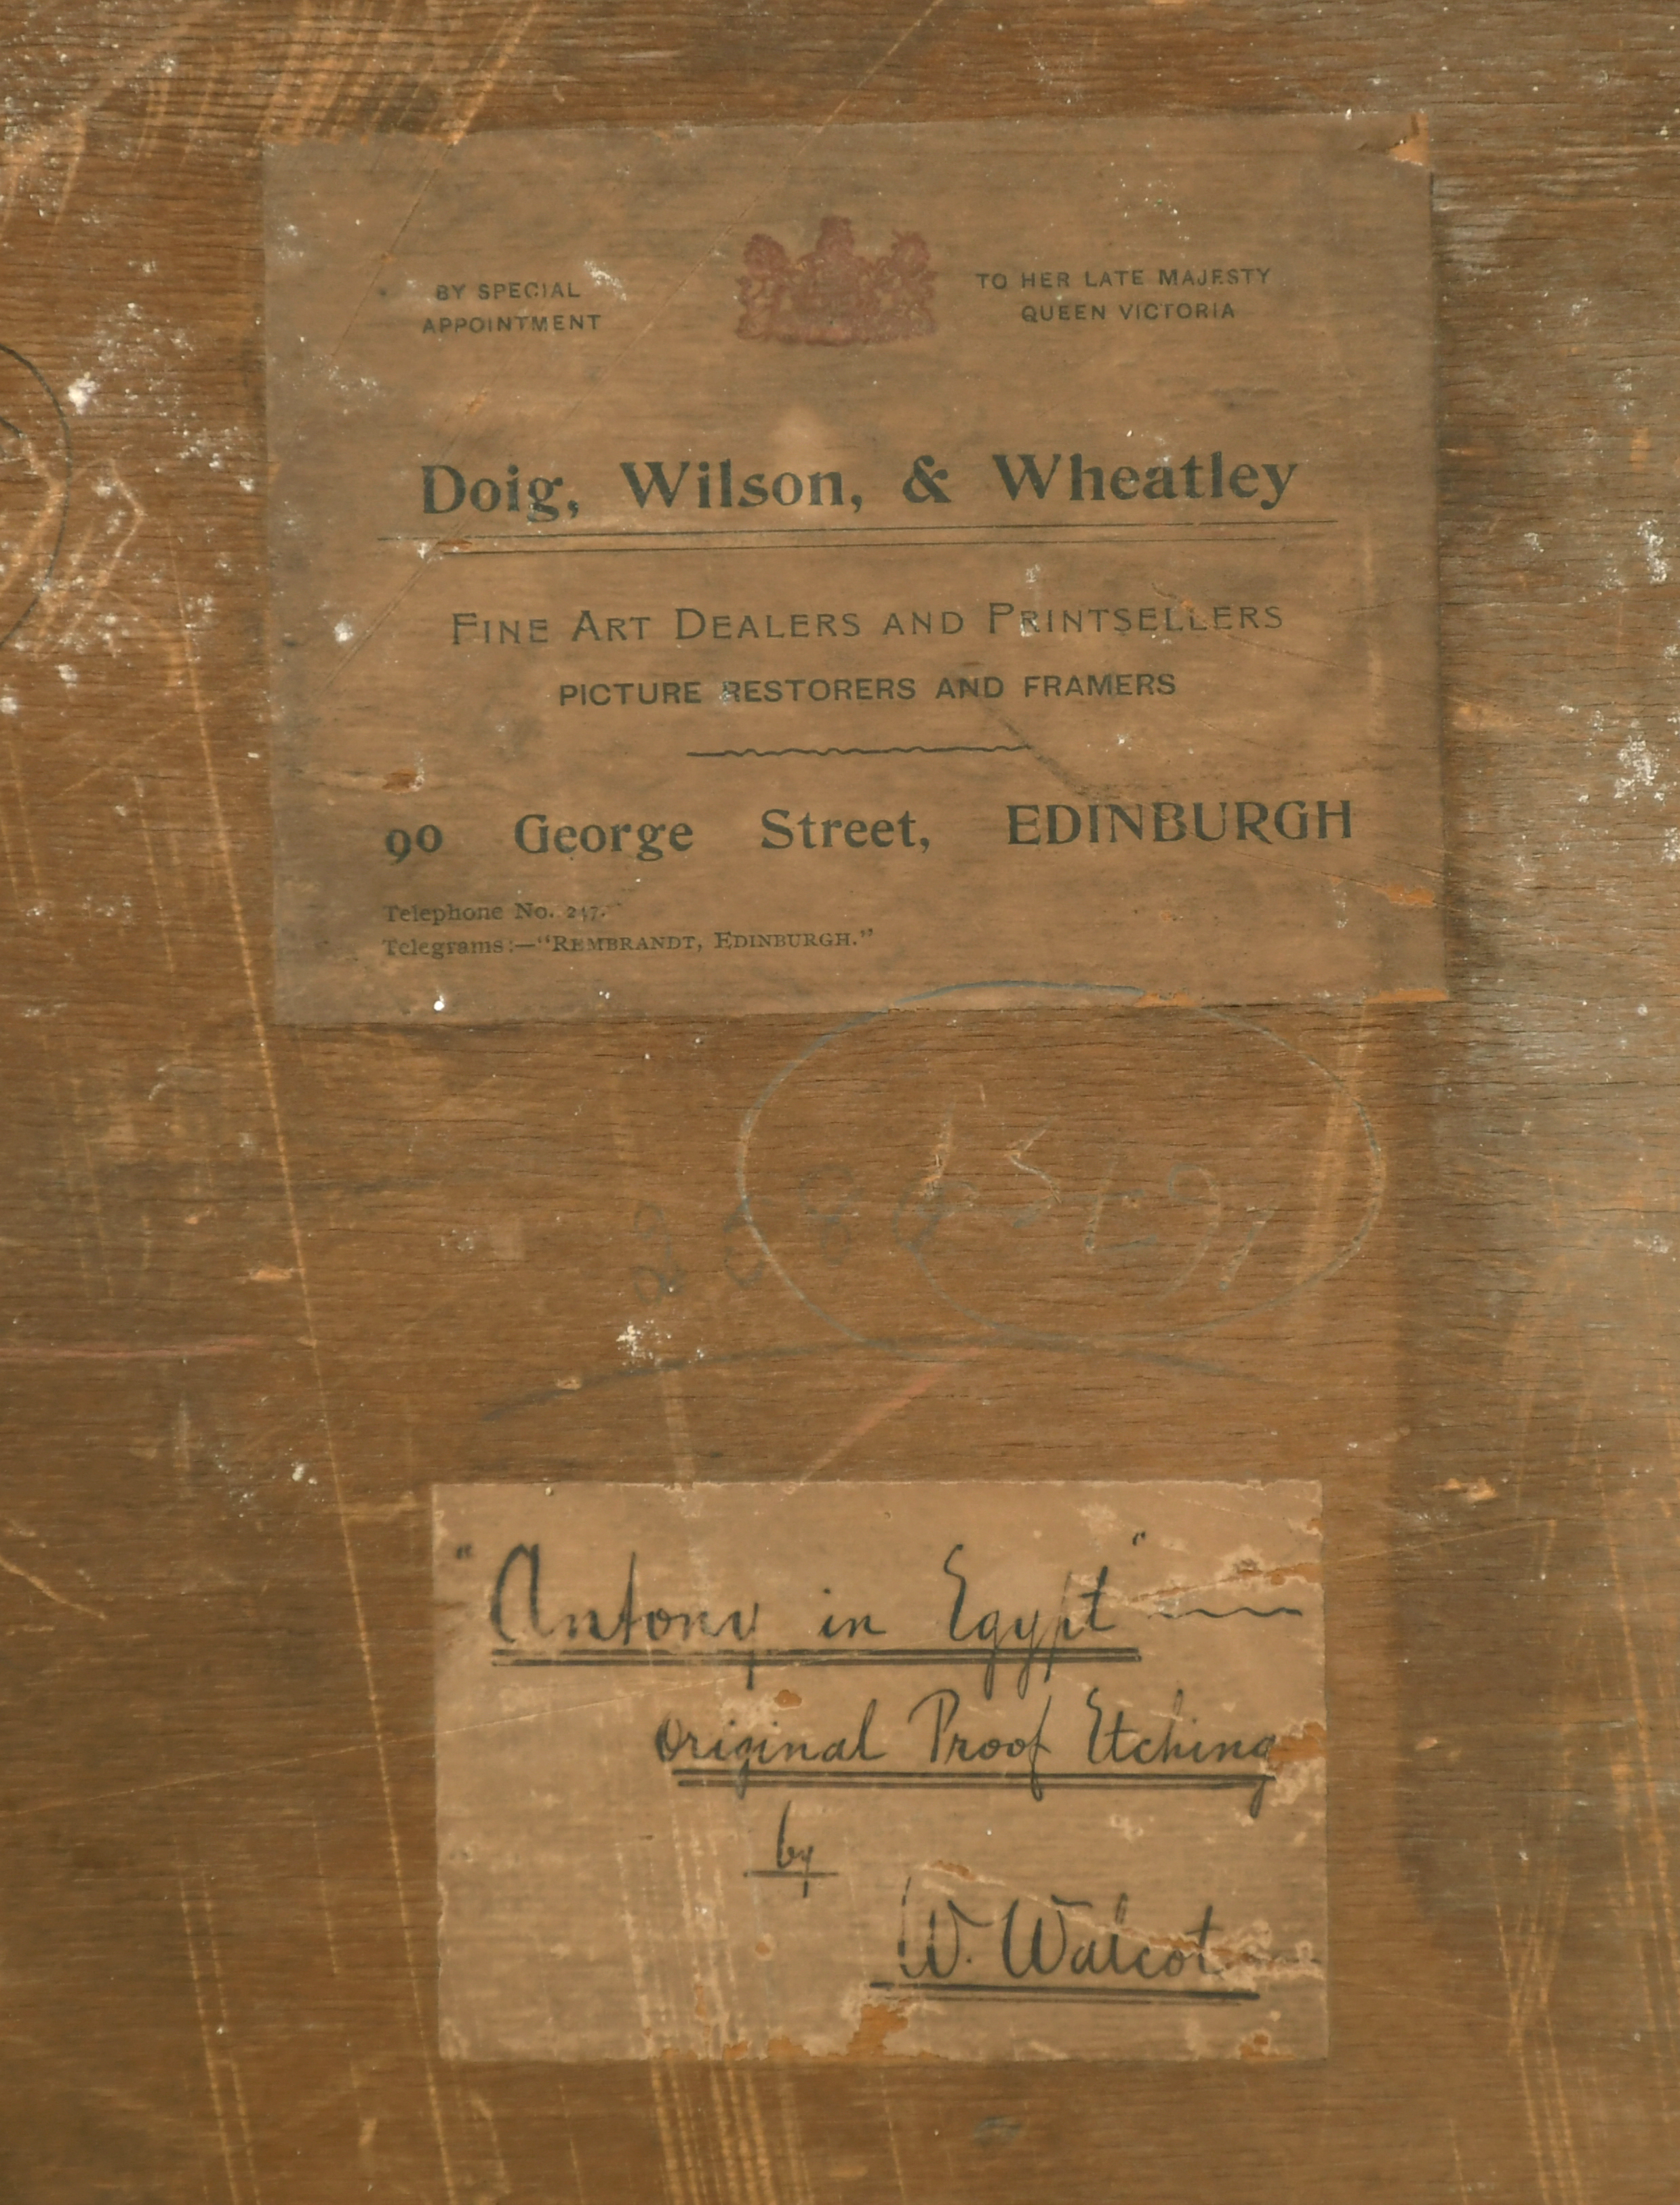 BY SPECIAL
APPOINTMENT
TO HER LATE MAJESTY
QUEEN VICTORIA
Doig, Wilson, & Wheatley
FINE ART DEALERS AND PRINTSELLERS
PICTURE RESTORERS AND FRAMERS
90 George Street, EDINBURGH
Telephone No. 247.
Telegrams:—"REMBRANDT, EDINBURGH."
"Antony in Egypt"
Original Proof Etching
by
W. Walcot